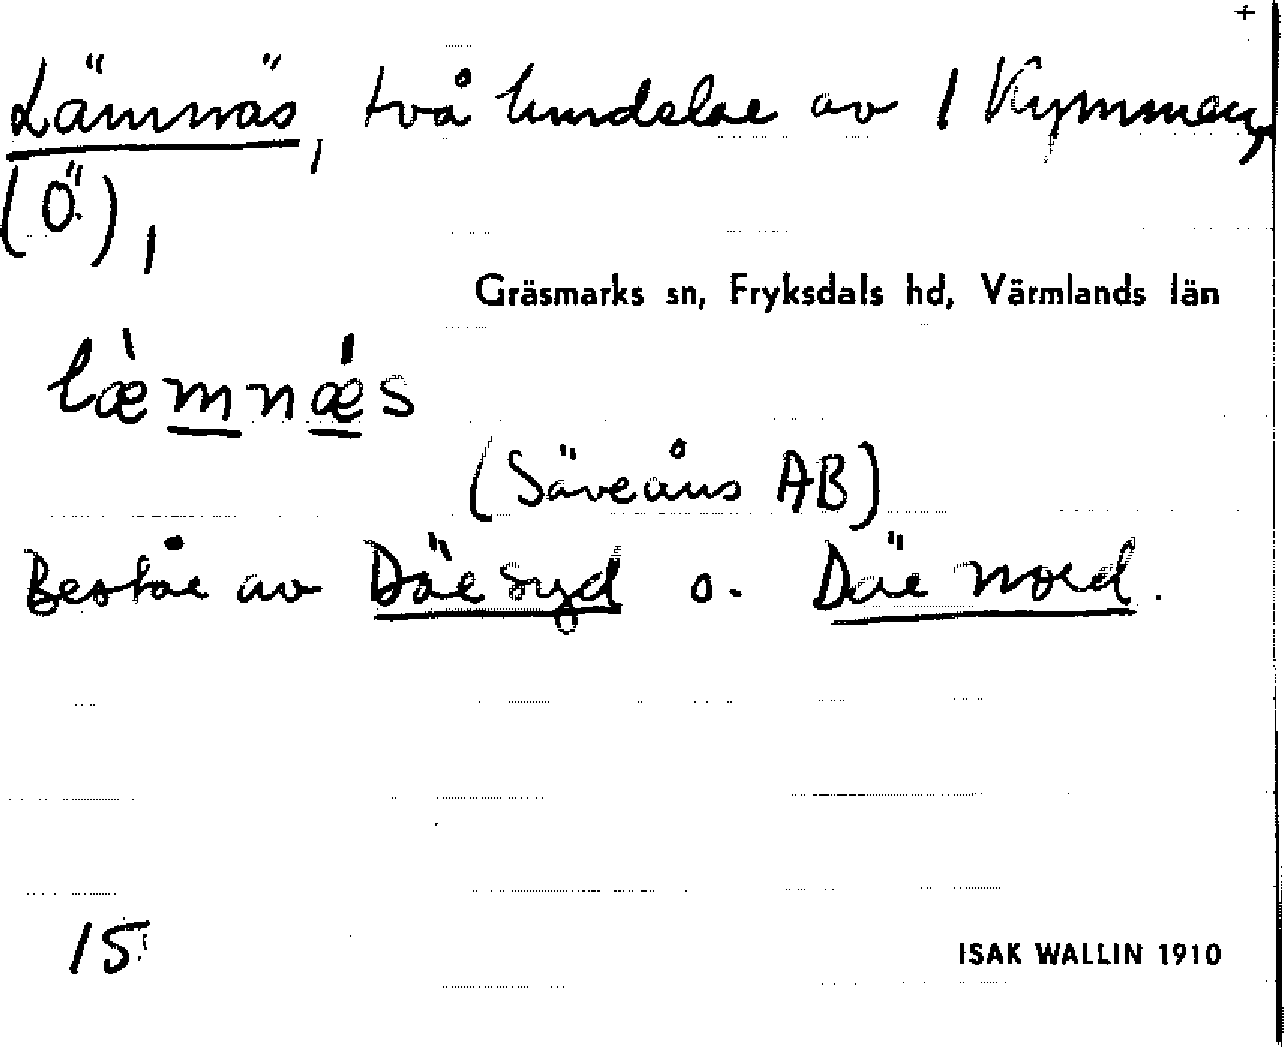 Lämnäs, två hmdelar av 1 Kymmen,
(Ö),
Gräsmarks sn, Fryksdals hd, Värmlands län
læ̀mnǽs
(Säveåns AB)
Består av Där syd o. Där nord.
15
ISAK WALLIN 1910